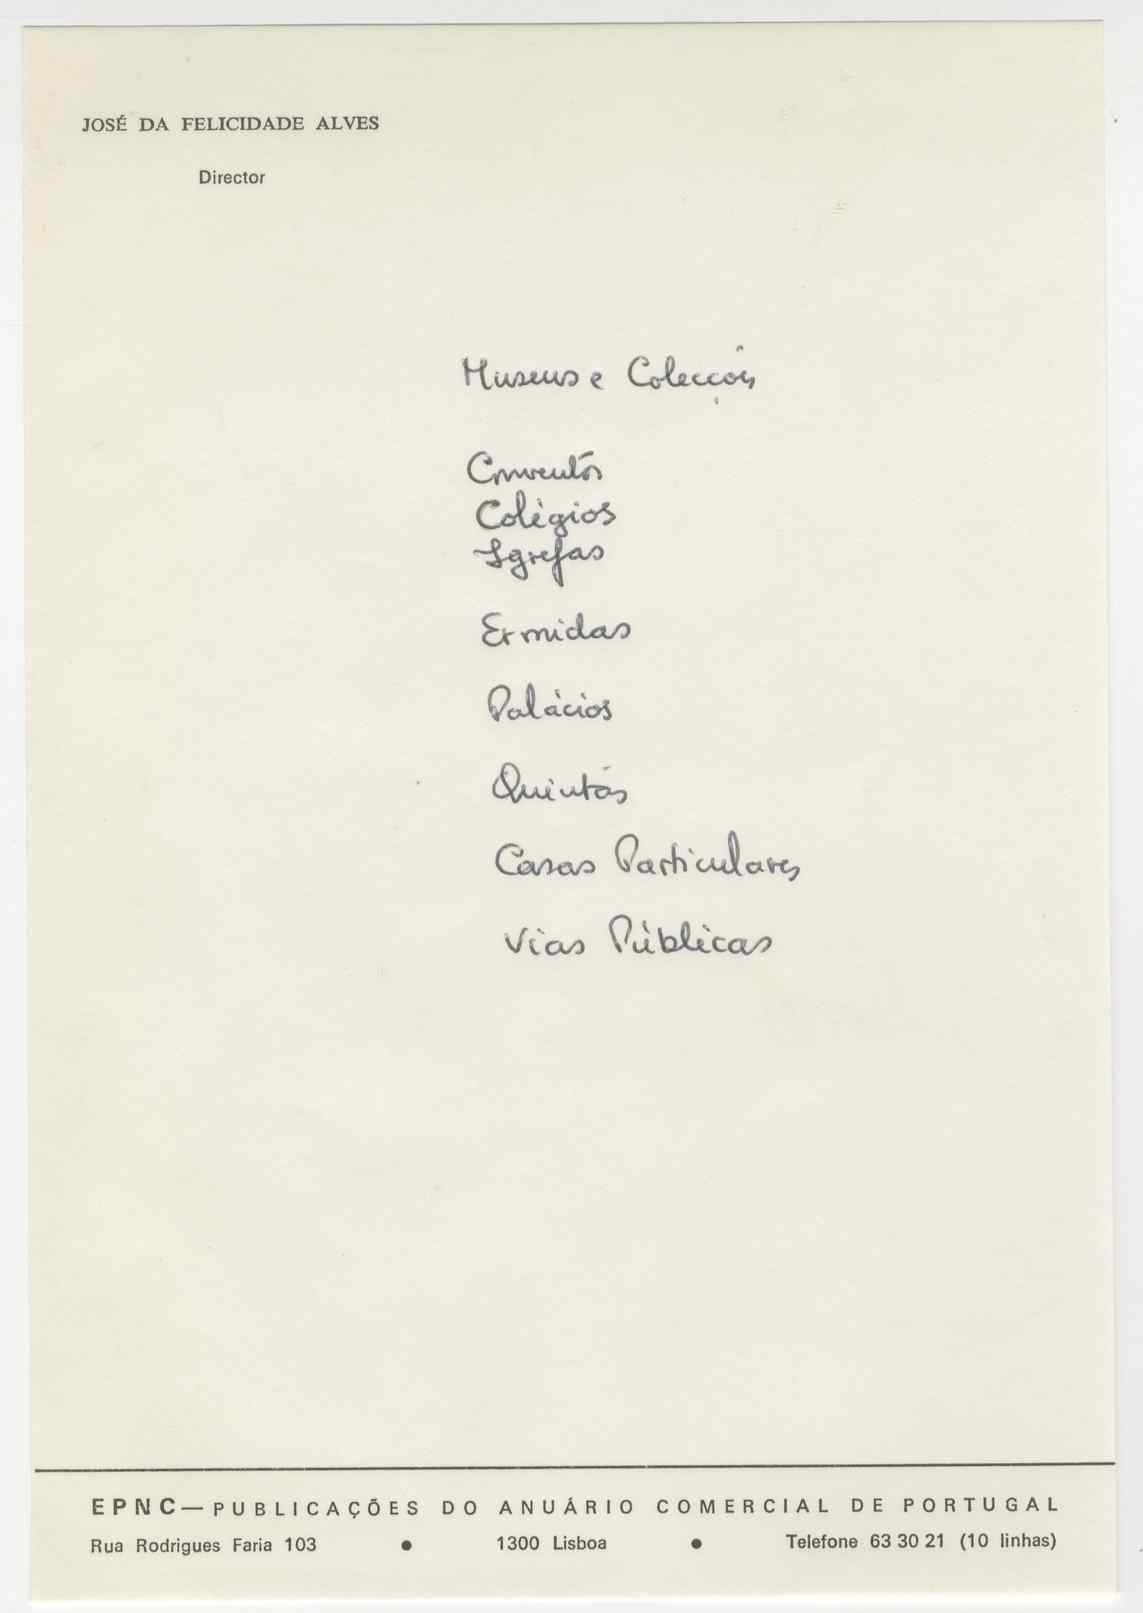 JOSÉ DA FELICIDADE ALVES
Director
Museus e Colecções
Conventos
Colégios
Igrejas
Ermidas
Palácios
Quintas
Casas Particulares
Vias Públicas
EPNC — PUBLICAÇÕES DO ANUÁRIO COMERCIAL DE PORTUGAL
Rua Rodrigues Faria 103 • 1300 Lisboa • Telefone 63 30 21 (10 linhas)